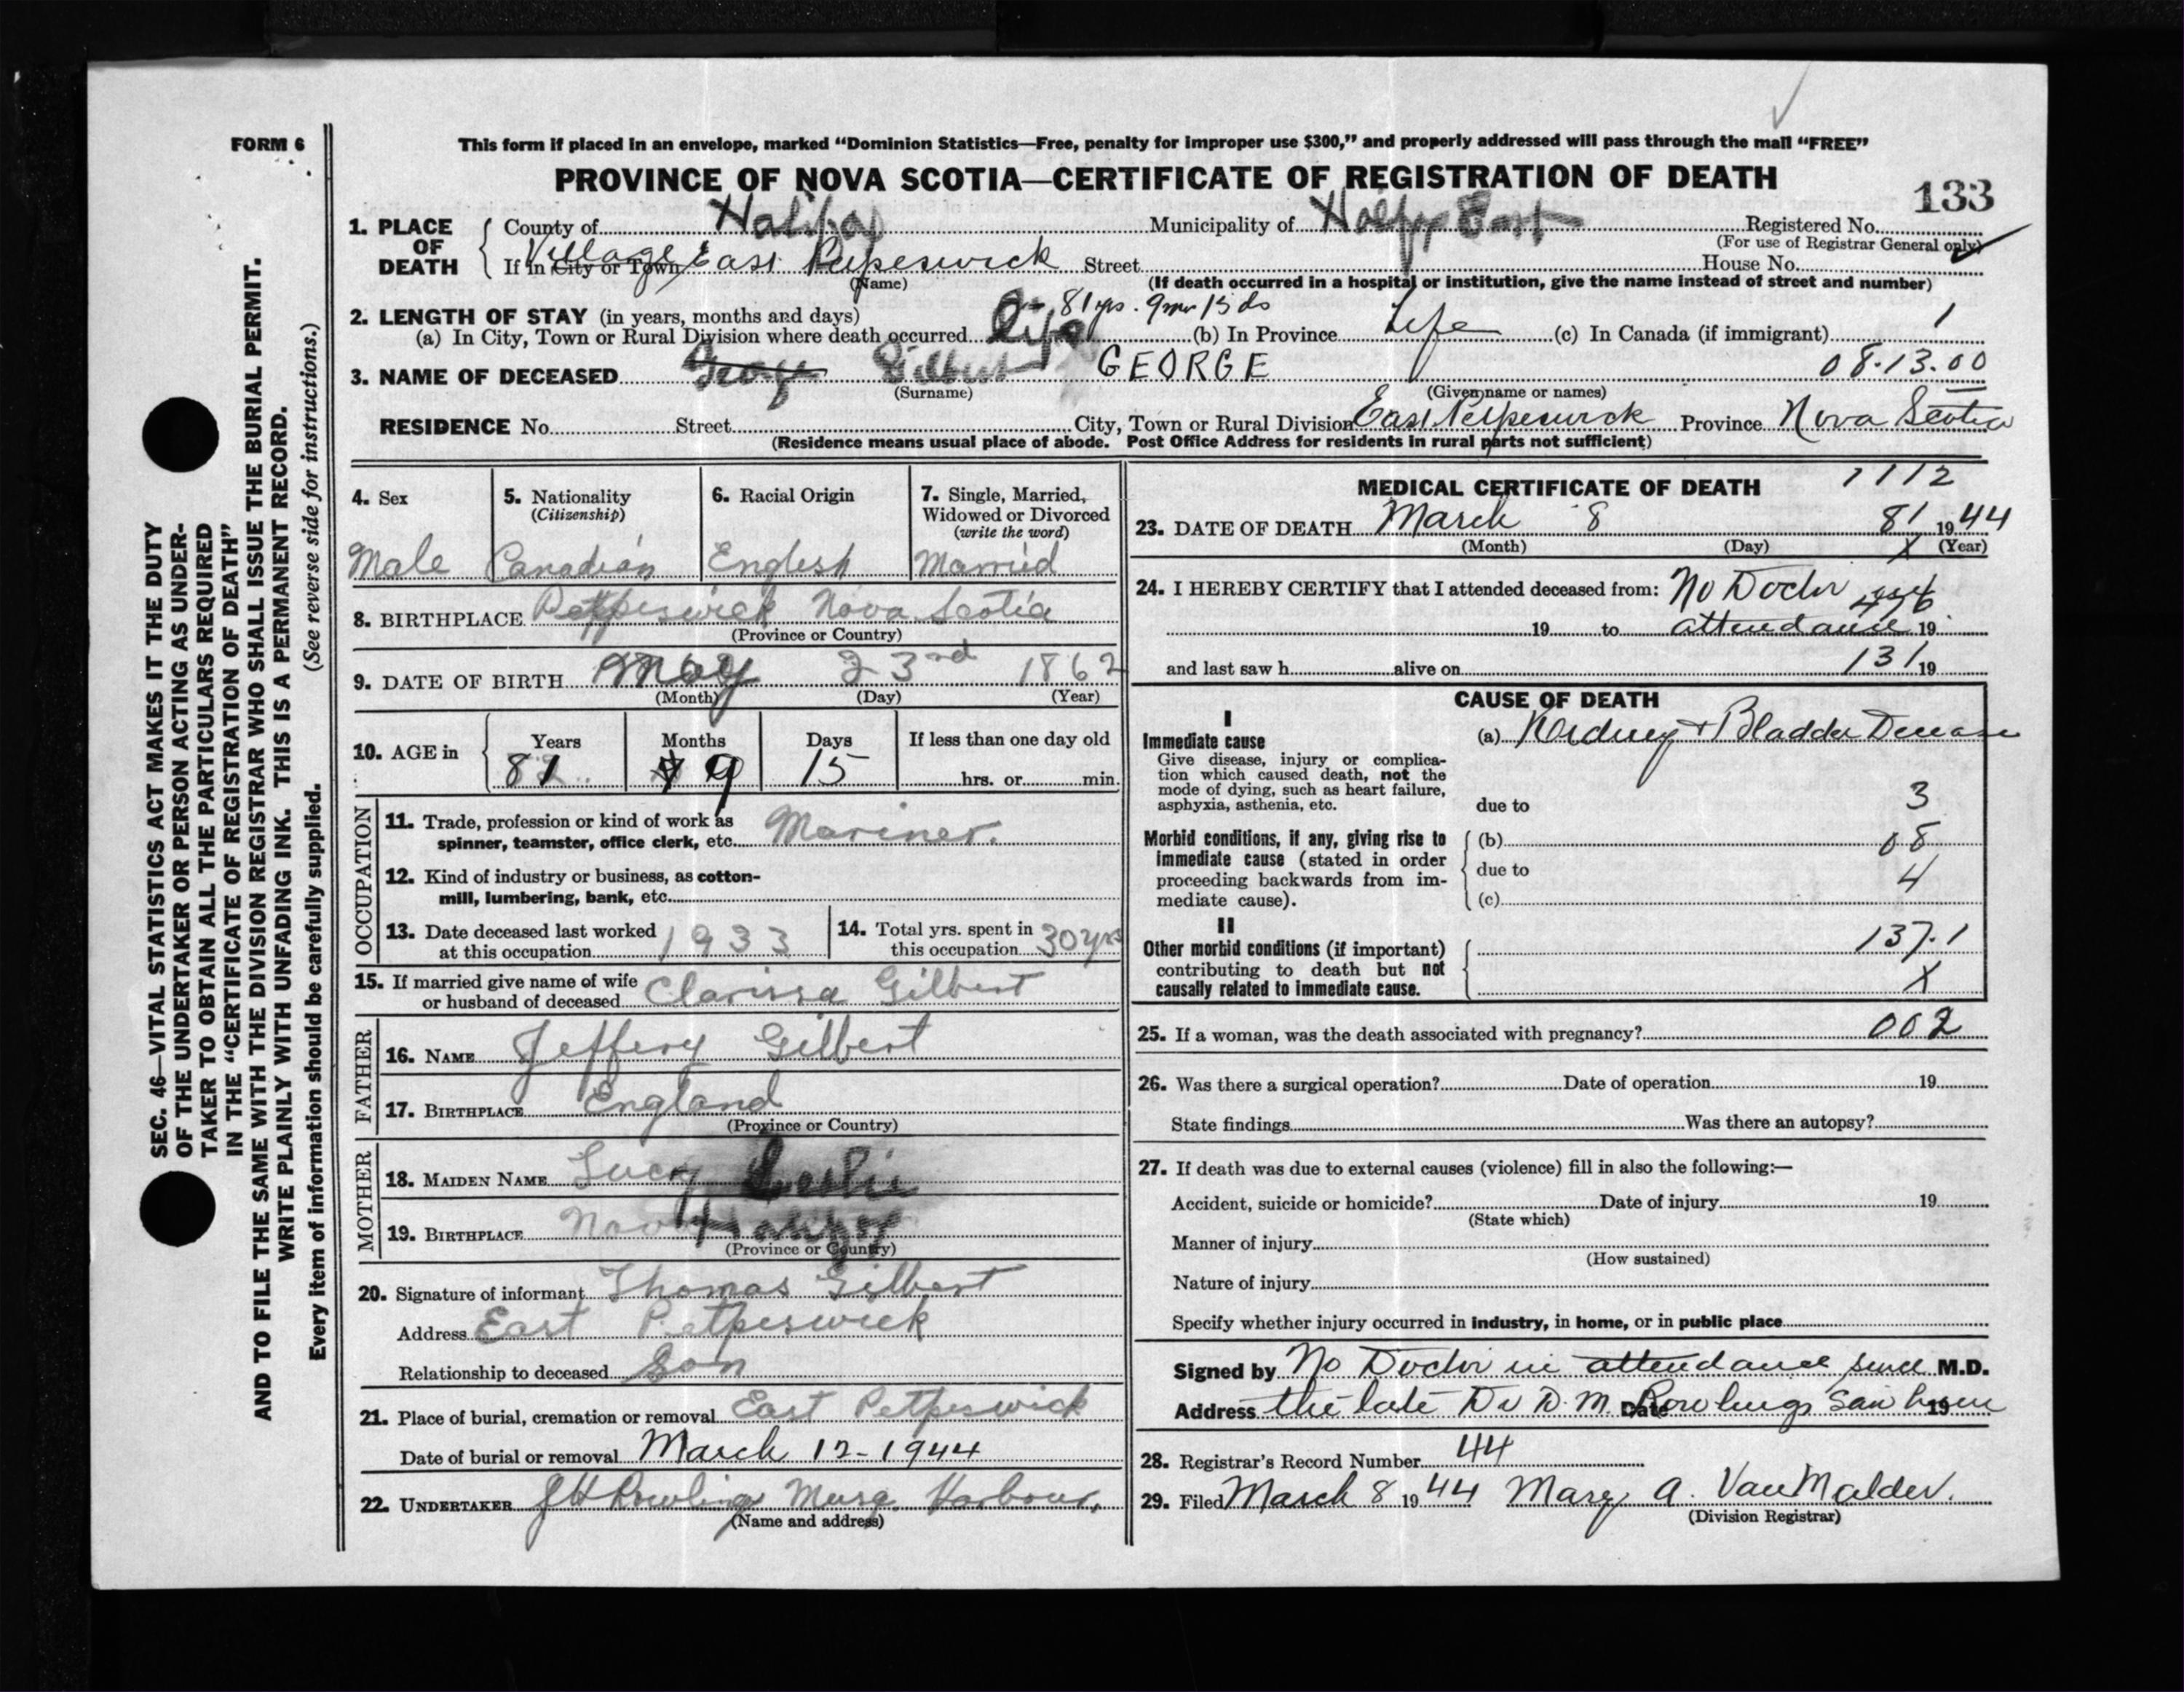 FORM 6
This form if placed in an envelope, marked "Dominion Statistics—Free, penalty for improper use $300," and properly addressed will pass through the mail "FREE"
PROVINCE OF NOVA SCOTIA—CERTIFICATE OF REGISTRATION OF DEATH
133
1. PLACE OF DEATH
County of Halifax Municipality of Halifax East Registered No.
(For use of Registrar General only)
If in City or Town Village East Petpeswick Street House No.
(Name)
(If death occurred in a hospital or institution, give the name instead of street and number)
2. LENGTH OF STAY (in years, months and days) 81 yrs. 9 mo 15 ds
(a) In City, Town or Rural Division where death occurred Life (b) In Province Life (c) In Canada (if immigrant) 1
3. NAME OF DECEASED George Gilbert GEORGE 08.13.00
(Surname) (Given name or names)
RESIDENCE No. Street City, Town or Rural Division East Petpeswick Province Nova Scotia
(Residence means usual place of abode. Post Office Address for residents in rural parts not sufficient)
SEC. 46—VITAL STATISTICS ACT MAKES IT THE DUTY
OF THE UNDERTAKER OR PERSON ACTING AS UNDER-
TAKER TO OBTAIN ALL THE PARTICULARS REQUIRED
IN THE "CERTIFICATE OF REGISTRATION OF DEATH"
AND TO FILE THE SAME WITH THE DIVISION REGISTRAR WHO SHALL ISSUE THE BURIAL PERMIT.
WRITE PLAINLY WITH UNFADING INK. THIS IS A PERMANENT RECORD.
Every item of information should be carefully supplied. (See reverse side for instructions.)
4. Sex
Male
5. Nationality
(Citizenship)
Canadian
6. Racial Origin
English
7. Single, Married,
Widowed or Divorced
(write the word)
Married
8. BIRTHPLACE Petpeswick Nova Scotia
(Province or Country)
9. DATE OF BIRTH May 23rd 1862
(Month) (Day) (Year)
10. AGE in
Years Months Days If less than one day old
81 9 15 hrs. or min.
OCCUPATION
11. Trade, profession or kind of work as
spinner, teamster, office clerk, etc. Mariner.
12. Kind of industry or business, as cotton-
mill, lumbering, bank, etc.
13. Date deceased last worked
at this occupation 1933
14. Total yrs. spent in
this occupation 30 yrs
15. If married give name of wife
or husband of deceased Clarissa Gilbert
FATHER
16. NAME Jeffery Gilbert
17. BIRTHPLACE England
(Province or Country)
MOTHER
18. MAIDEN NAME Lucy Leslie
19. BIRTHPLACE Halifax
(Province or Country)
20. Signature of informant Thomas Gilbert
Address East Petpeswick
Relationship to deceased Son
21. Place of burial, cremation or removal East Petpeswick
Date of burial or removal March 12-1944
22. UNDERTAKER J H Rowlings Musq. Harbour.
(Name and address)
MEDICAL CERTIFICATE OF DEATH 1112
23. DATE OF DEATH March 8 81 1944
(Month) (Day) X (Year)
24. I HEREBY CERTIFY that I attended deceased from: No Doctor
19 to attendance 19
and last saw h alive on 131 19
CAUSE OF DEATH
I
Immediate cause
Give disease, injury or complica-
tion which caused death, not the
mode of dying, such as heart failure,
asphyxia, asthenia, etc.
(a) Kidney + Bladder Disease
due to 3
Morbid conditions, if any, giving rise to
immediate cause (stated in order
proceeding backwards from im-
mediate cause).
(b) 08
due to 4
(c)
II
Other morbid conditions (if important)
contributing to death but not
causally related to immediate cause.
137.1
X
25. If a woman, was the death associated with pregnancy? 002
26. Was there a surgical operation? Date of operation 19
State findings Was there an autopsy?
27. If death was due to external causes (violence) fill in also the following:—
Accident, suicide or homicide? Date of injury 19
(State which)
Manner of injury
(How sustained)
Nature of injury
Specify whether injury occurred in industry, in home, or in public place
Signed by No Doctor in attendance since M.D.
Address the late Dr D. M. Rowlings saw him Date 19
28. Registrar's Record Number 44
29. Filed March 8 1944 Mary A. VanMalder.
(Division Registrar)